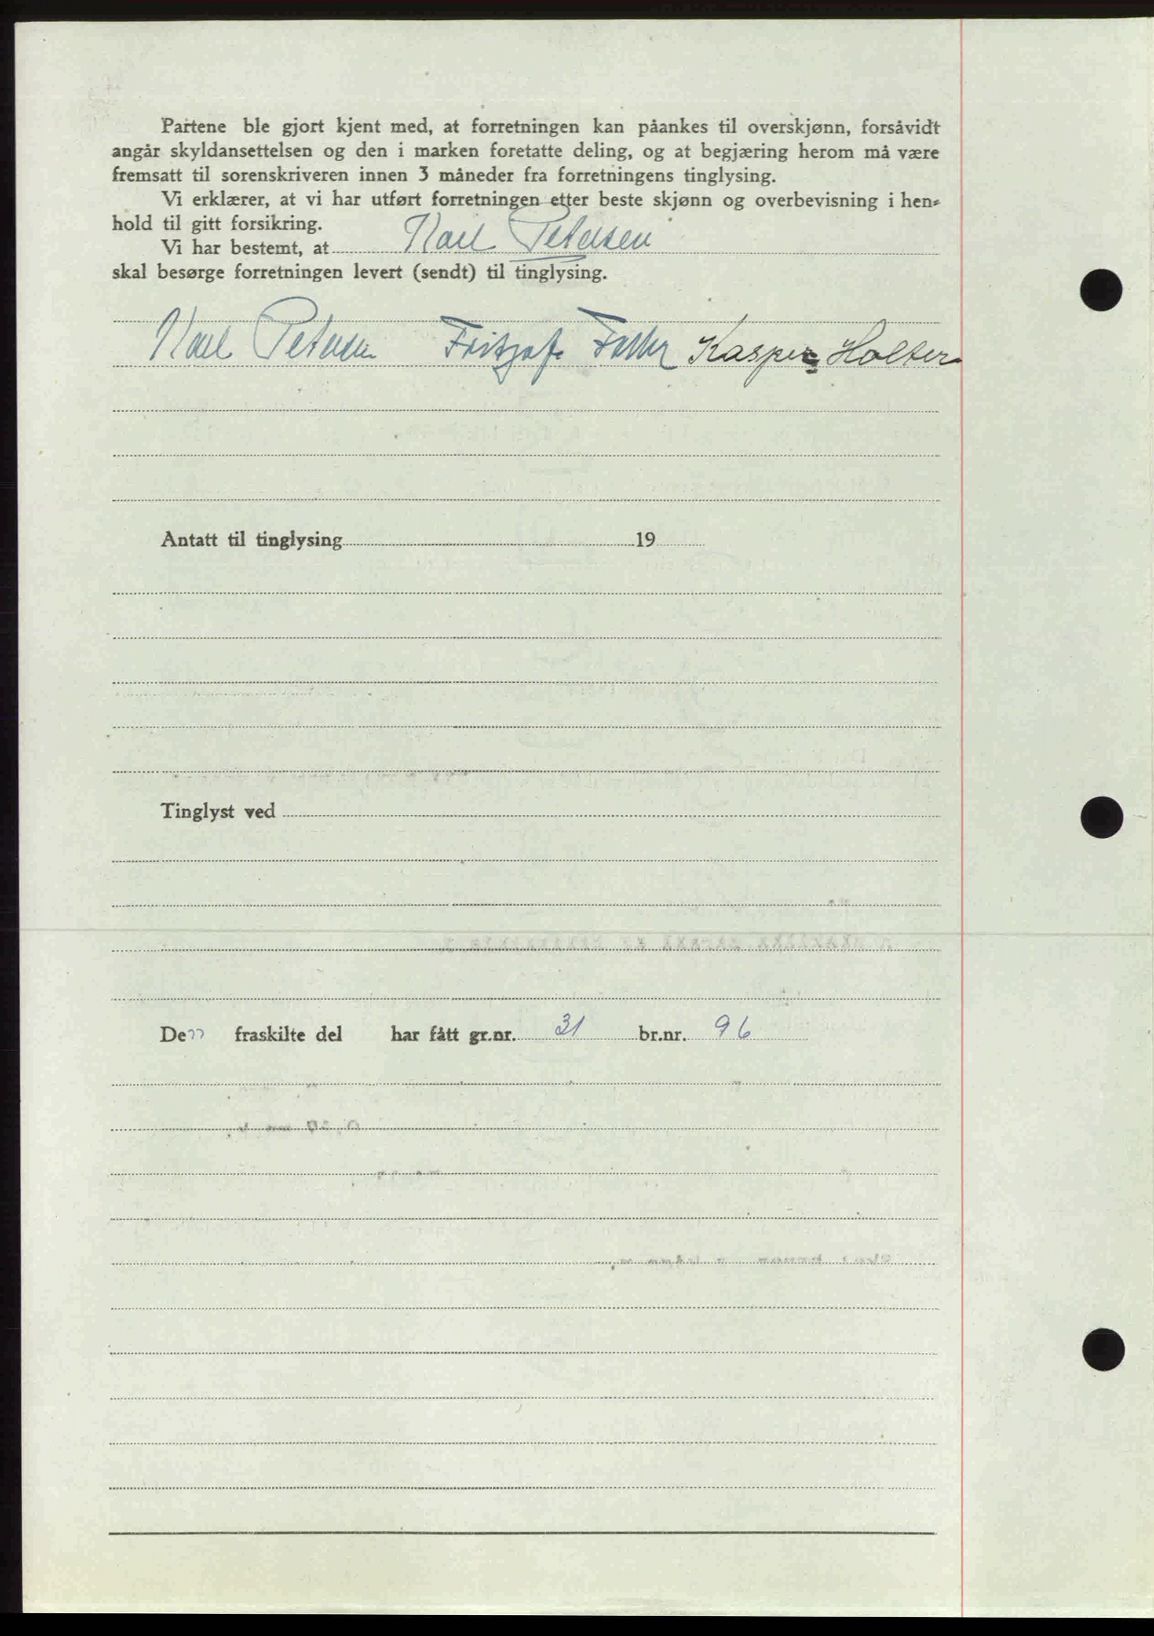 Partene ble gjort kjent med, at forretningen kan påankes til overskjønn, forsåvidt
angår skyldansettelsen og den i marken foretatte deling, og at begjæring herom må være
fremsatt til sorenskriveren innen 3 måneder fra forretningens tinglysing.
Vi erklærer, at vi har utført forretningen etter beste skjønn og overbevisning i hen-
hold til gitt forsikring.
Vi har bestemt, at Karl Petersen
skal besørge forretningen levert (sendt) til tinglysing.
Karl Petersen Kasper Holter
Antatt til tinglysing 19
Tinglyst ved
Denn fraskilte del har fått gr.nr. 31 br.nr. 96